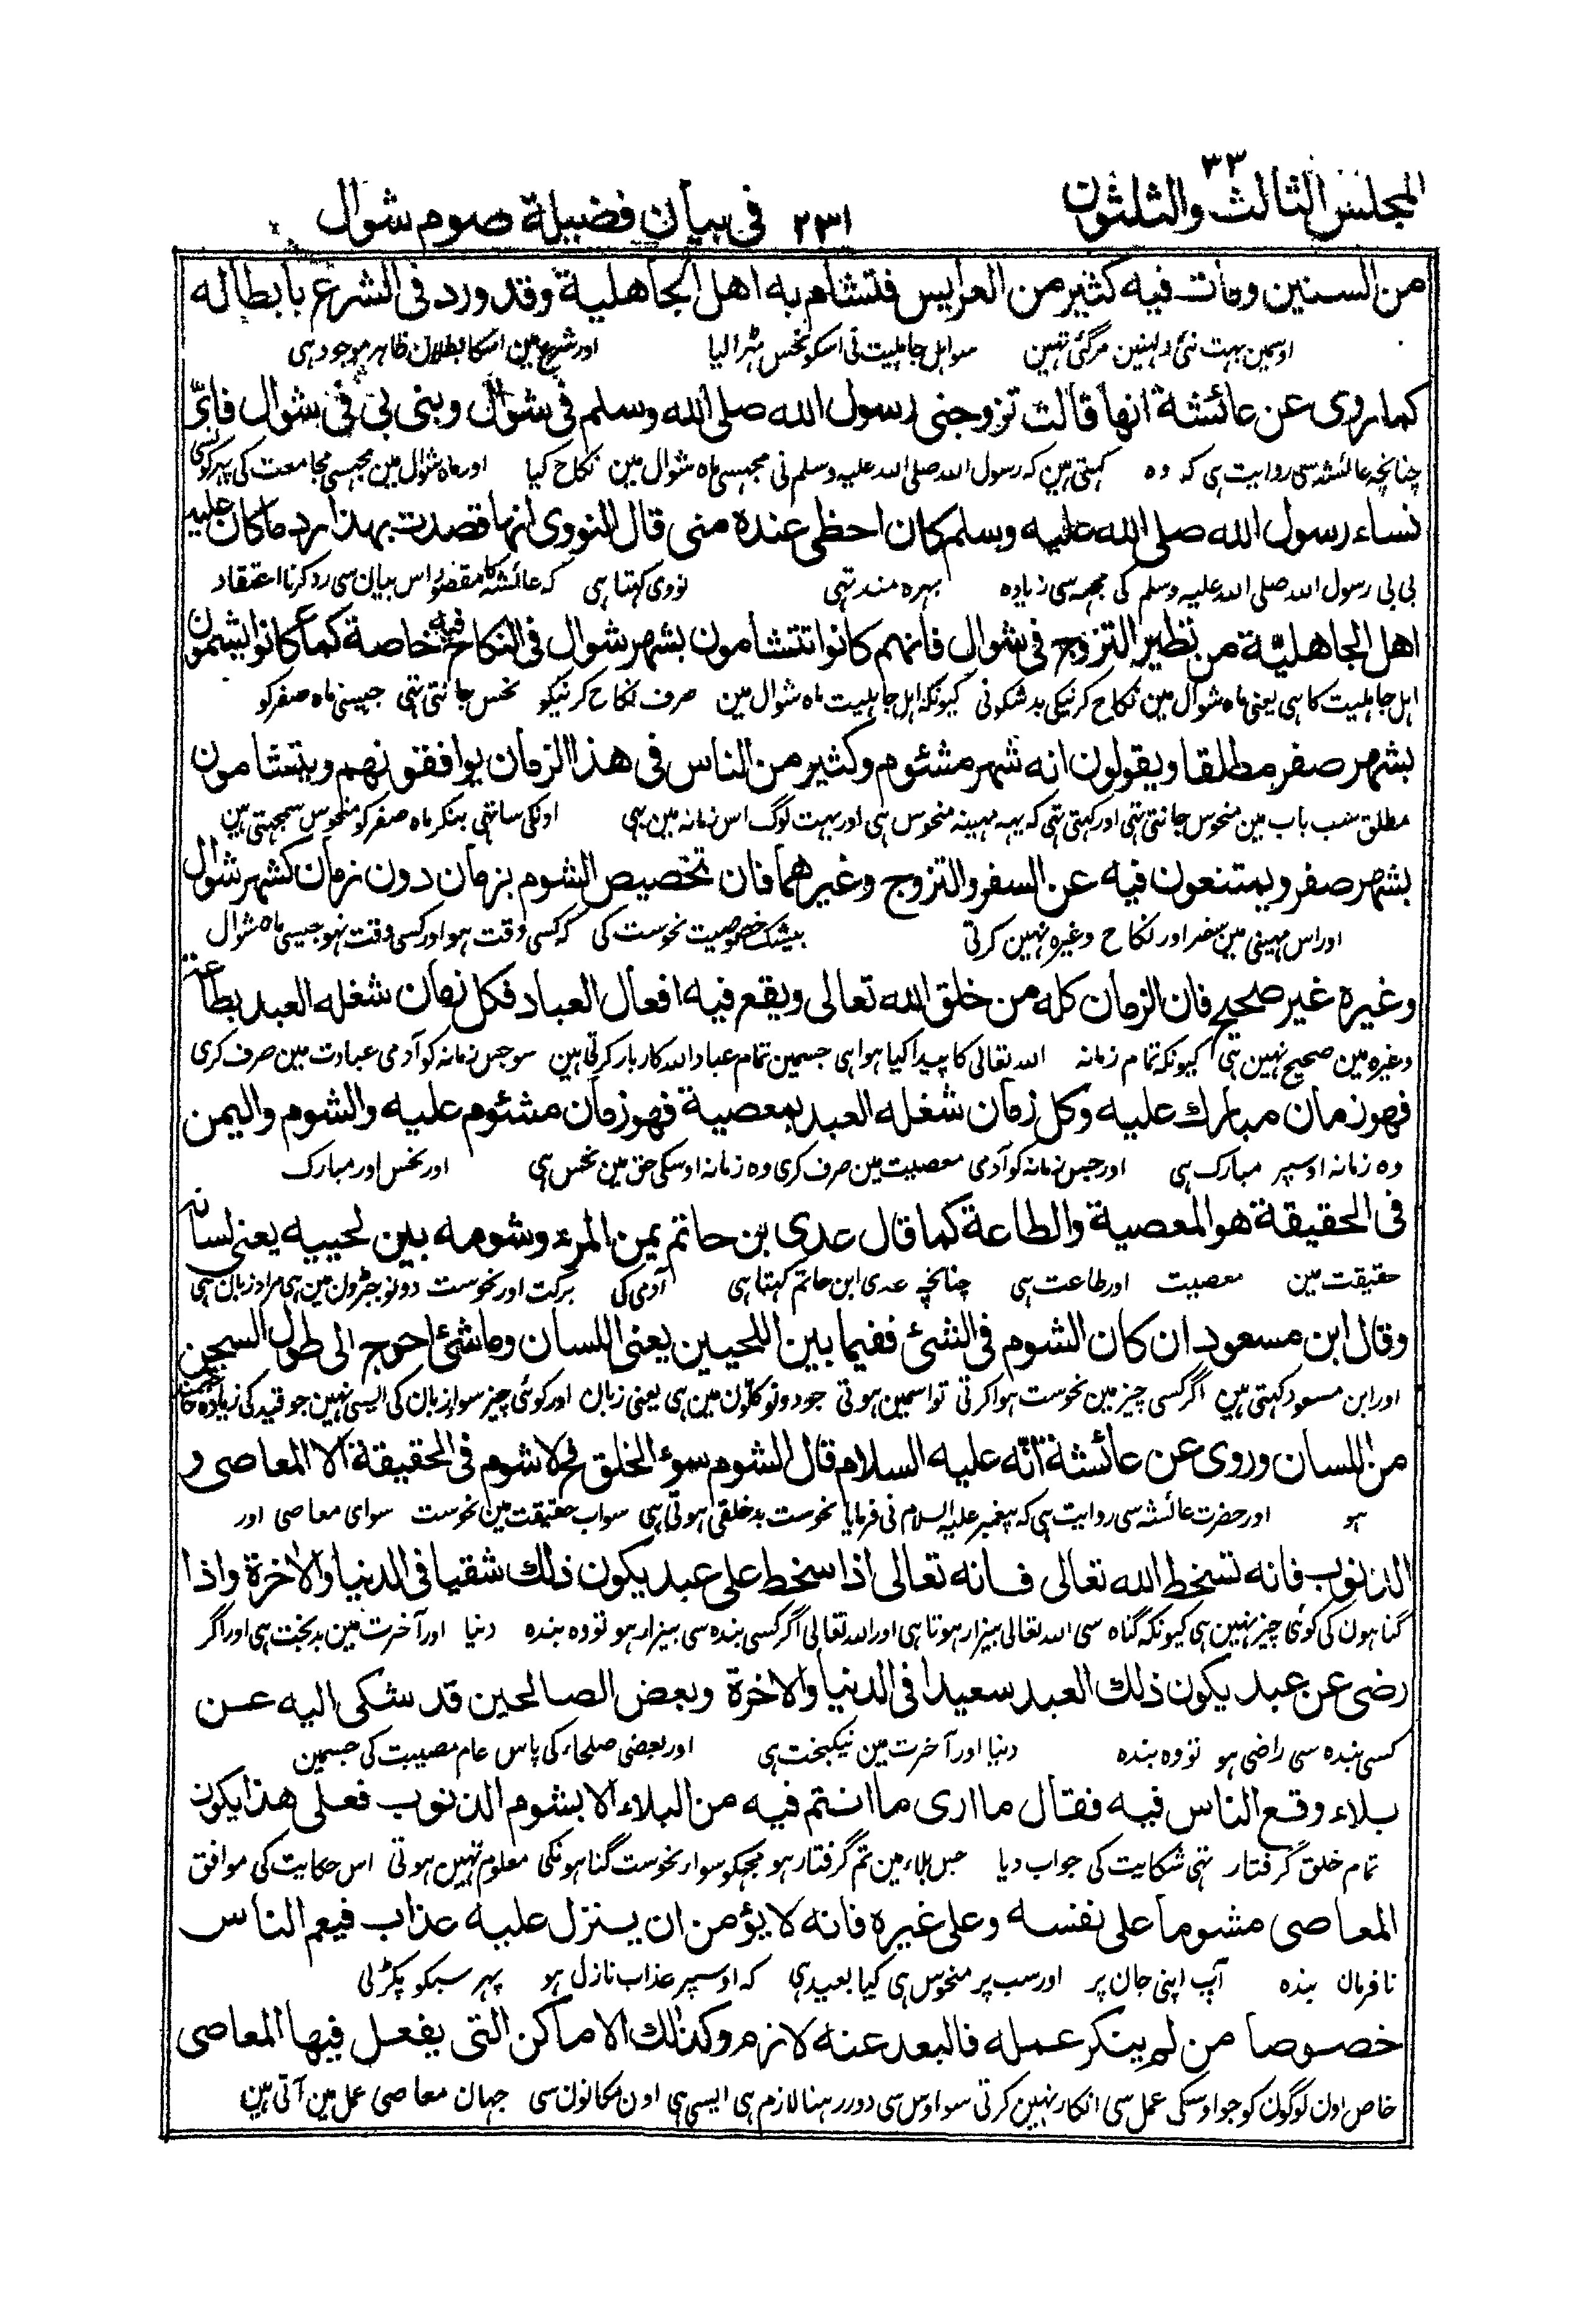 المجلس الثالث والثلثون ٣٣
٢٣١
فى بيان فضيلة صوم شوال
من السنين ومات فيه كثير من العرايس فتشام به اهل الجاهلية وقد ورد فى الشرع بابطاله
اوسمین بہت نئی دلہنین مرگئی تہین سو اہل جاہلیت نی اسکو نحس ٹہرا لیا اور شرع مین اسکا بطلان ظاہر موجود ہی
كما روى عن عائشة انها قالت تزوجنى رسول الله صلى الله وسلم فى شوال وبنى بى فى شوال فاىّ
چنانچہ عائشہ سی روایت ہی کہ وہ کہتی ہین کہ رسول اللہ صلی اللہ علیہ وسلم نی مجہسی ماہ شوال مین نکاح کیا اور ماہ شوال مین مجہسی مجامعت کی پہر کونسی
نساء رسول الله صلى الله عليه وسلم كان احظى عنده منى قال النووى انها قصدت بهذا رد ما كان عليه
بی بی رسول اللہ صلی اللہ علیہ وسلم کی مجہہ سی زیادہ بہرہ مند تہی نووی کہتا ہی کہ عائشہ کا مقصود اس بیان سی رد کرنا اعتقاد
اهل الجاهلية من تطير التزوج فى شوال فانهم كانوا تتشامون بشهر شوال فى النكاح فيه خاصة كما كانوا يشمون
اہل جاہلیت کا ہی یعنی ماہ شوال مین نکاح کرنیکی بدشکونی کیونکہ اہل جاہلیت ماہ شوال مین صرف نکاح کرنیکو نحس جانتی تہی جیسی ماہ صفر کو
بشهر صفر مطلقا ويقولون انه شهر مشئوم وكثير من الناس فى هذا الزمان يوافقونهم ويتشامون
مطلق سب باب مین منحوس جانتی تہی اور کہتی تہی کہ یہہ مہینہ منحوس ہی اور بہت لوگ اس زمانہ مین بہی اونکی ساتہی بنکر ماہ صفر کو منحوس سمجہتی ہین
بشهر صفر ويمتنعون فيه عن السفر والتزوج وغيرهما فان تخصيص الشوم بزمان دون زمان كشهر شوال
اور اس مہینی مین سفر اور نکاح وغیرہ نہین کرتی بیشک خصوصیت نحوست کی کہ کسی وقت ہو اور کسی وقت نہو جیسی ماہ شوال
وغيره غير صحيح فان الزمان كله من خلق الله تعالى ويقع فيه افعال العباد فكل زمان شغله العبد بطاعته
وغیرہ مین صحیح نہین ہی کیونکہ تمام زمانہ اللہ تعالی کا پیدا کیا ہوا ہی جسمین تمام عباد اللہ کاربار کرتی ہین سو جس زمانہ کو آدمی عبادت مین صرف کری
فهو زمان مبارك عليه وكل زمان شغله العبد بمعصية فهو زمان مشئوم عليه والشوم واليمن
وہ زمانہ اوسپر مبارک ہی اور جس زمانہ کو آدمی معصیت مین صرف کری وہ زمانہ اوسکی حق مین نحس ہی اور نحس اور مبارک
فى الحقيقة هو المعصية والطاعة كما قال عدى بن حاتم يمن المرء وشومه بين لحييه يعنى لسانه
حقیقت مین معصیت اور طاعت ہی چنانچہ عدی ابن حاتم کہتا ہی آدمی کی برکت اور نحوست دونو جبڑون مین ہی مراد زبان ہی
وقال ابن مسعود ان كان الشوم فى الشئ ففيما بين اللحيين يعنى اللسان وما شئ احوج الى طول السجن
اور ابن مسعود کہتی ہین اگر کسی چیز مین نحوست ہوا کرتی تو اسمین ہوتی جو دونو کلون مین ہی یعنی زبان اور کوئی چیز سوا زبان کی ایسی نہین جو قید کی زیادہ
من اللسان وروى عن عائشة انّه عليه السلام قال الشوم سوء الخلق فح لا شوم فى الحقيقة الا المعاصى و
ہو اور حضرت عائشہ سی روایت ہی کہ پیغمبر علیہ السلام نی فرمایا نحوست بدخلقی ہوتی ہی سو اب حقیقت مین نحوست سوای معاصی اور
الذنوب فانه تسخط الله تعالى فانه تعالى اذا سخط على عبد يكون ذلك شقيا فى الدنيا والاخرة واذا
گناہون کی کوئی چیز نہین ہی کیونکہ گناہ سی اللہ تعالی بیزار ہوتا ہی اور اللہ تعالی اگر کسی بندہ سی بیزار ہو تو وہ بندہ دنیا اور آخرت مین بدبخت ہی اور اگر
رضى عن عبد يكون ذلك العبد سعيدا فى الدنيا والاخرة وبعض الصالحين قد شكى اليه عن
کسی بندہ سی راضی ہو تو وہ بندہ دنیا اور آخرت مین نیکبخت ہی اور بعضی صلحاء کی پاس عام مصیبت کی جسمین
بلاء وقع الناس فيه فقال ما ارى ما انتم فيه من البلاء الا بشوم الذنوب فعلى هذا يكون
تمام خلق گرفتار تہی شکایت کی جواب دیا جس بلاء مین تم گرفتار ہو مجہکو سوا نحوست گناہونکی معلوم نہین ہوتی اس حکایت کی موافق
المعاصى مشوما على نفسه وعلى غيره فانه لا يؤمن ان ينزل عليه عذاب فيعم الناس
نافرمان بندہ آپ اپنی جان پر اور سب پر منحوس ہی کیا بعید ہی کہ اوسپر عذاب نازل ہو پہر سبکو پکڑ لی
خصوصا من لم ينكر عمله فالبعد عنه لازم وكذلك الاماكن التى يفعل فيها المعاصى
خاص اون لوگون کو جو اوسکی عمل سی انکار نہین کرتی سو اوس سی دور رہنا لازم ہی ایسی ہی اون مکانون سی جہان معاصی عمل مین آتی ہین